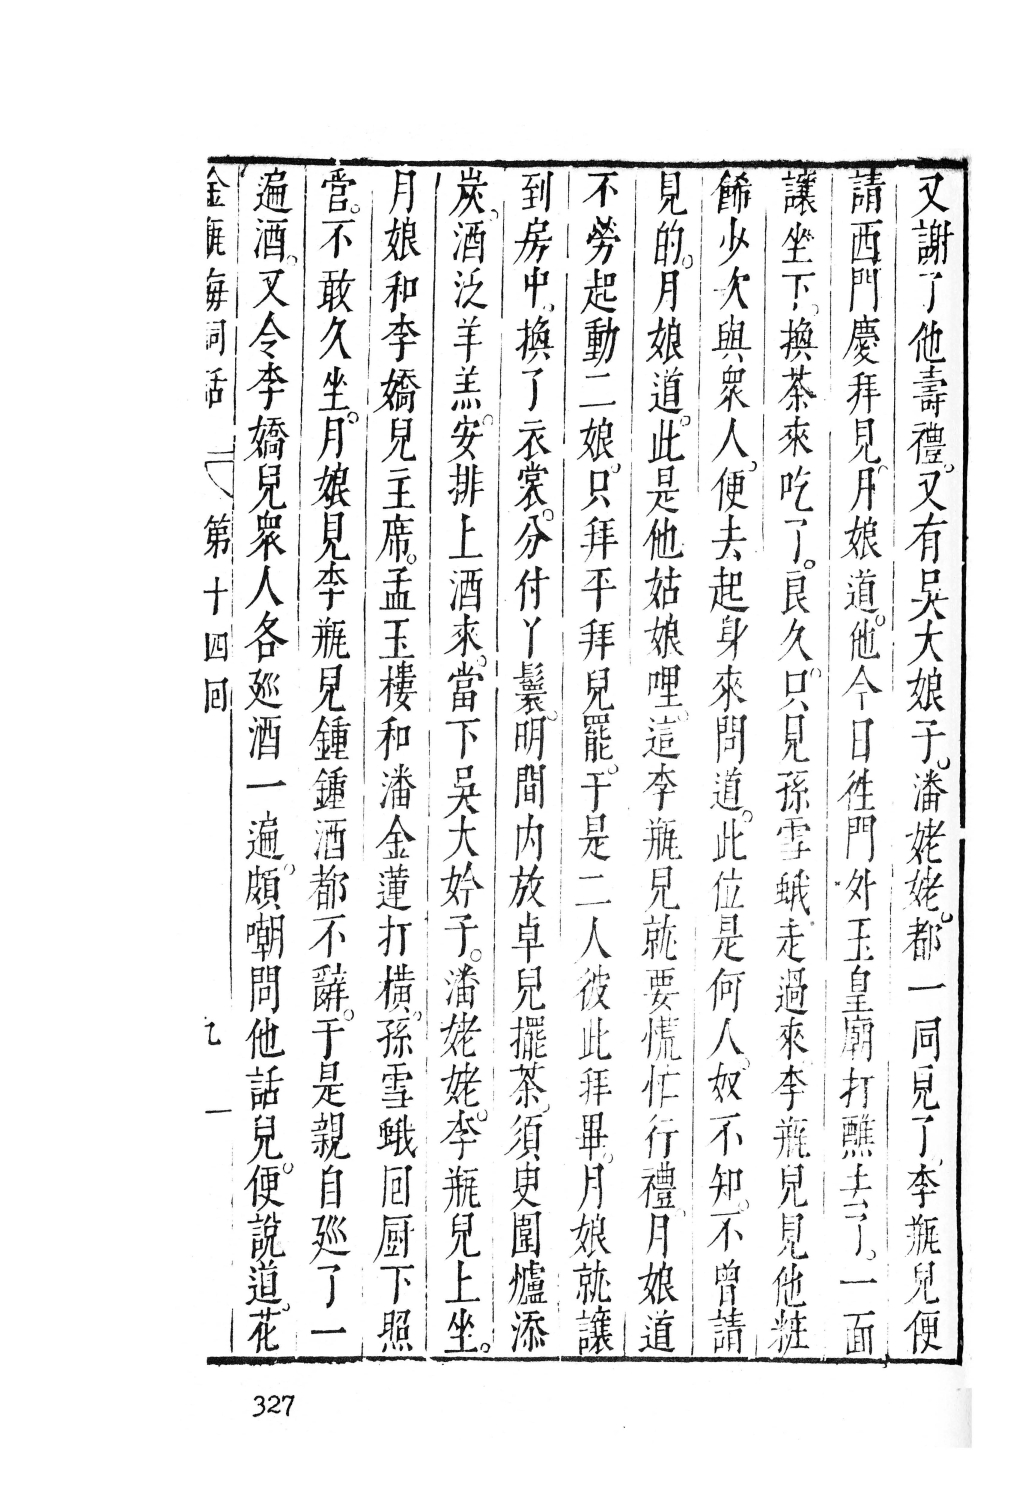 又謝了他壽禮。又有吳大娘子。潘姥姥。都一同見了。李瓶兒便
請西門慶拜見。月娘道。他今日徃門外玉皇廟打醮去了。一面
讓坐下。換茶來吃了。良久。只見孫雪蛾走過來。李瓶兒見他粧
餙少次與衆人。便去起身來問道。此位是何人。奴不知。不曾請
見的。月娘道。此是他姑娘哩。這李瓶兒就要慌忙行禮。月娘道
不勞起動二娘。只拜平拜兒罷。于是二人彼此拜畢。月娘就讓
到房中。換了衣裳。分付丫鬟。明間内放卓兒擺茶。須臾圍爐添
炭。酒泛羊羔。安排上酒來。當下吳大妗子。潘姥姥。李瓶兒上坐。
月娘和李嬌兒主席。孟玉樓和潘金蓮打橫。孫雪蛾回厨下照
管。不敢久坐。月娘見李瓶兒鍾鍾酒都不辭。于是親自廵了一
遍酒。又令李嬌兒衆人各廵酒一遍。頗嘲問他話兒。便說道。花
金瓶梅詞話 第十四回 九
327